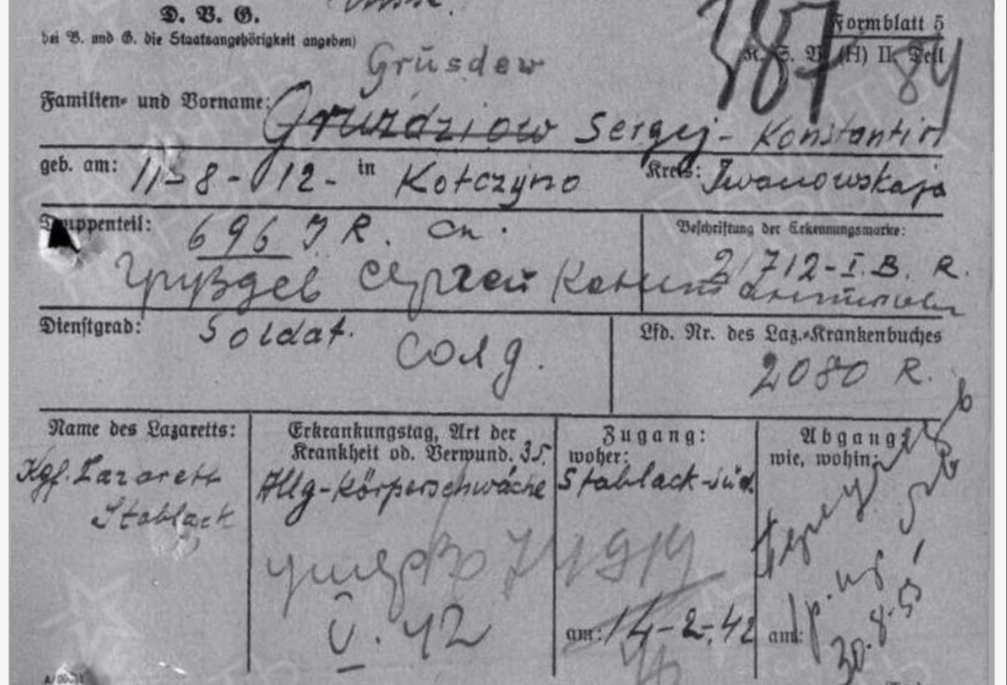 D. V. G.
bei V. und G. die Staatsangehörigkeit angeben)
Formblatt 5
K. S. V. (H) II. Teil
387
84
Grusdew
Familien- und Vorname: Gruźdźiow Sergej - Konstantin
geb. am: 11-8-12- in Kotczyno Kreis: Iwanowskaja
Truppenteil: 696 J R. сп.
Beschriftung der Erkennungsmarke:
2/712-I.B. R.
Груздев Сергей Константинович
Dienstgrad: Soldat.
солд.
Lfd. Nr. des Laz.-Krankenbuches
2080 R.
Name des Lazaretts:
Kgf. Lazarett
Stablack
Erkrankungstag, Art der
Krankheit od. Verwund. 35.
Allg-körperschwäche
V. 42
Zugang:
woher:
Stablack-süd.
am: 14-2-42
Abgang:
wie, wohin:
am:
30.8.